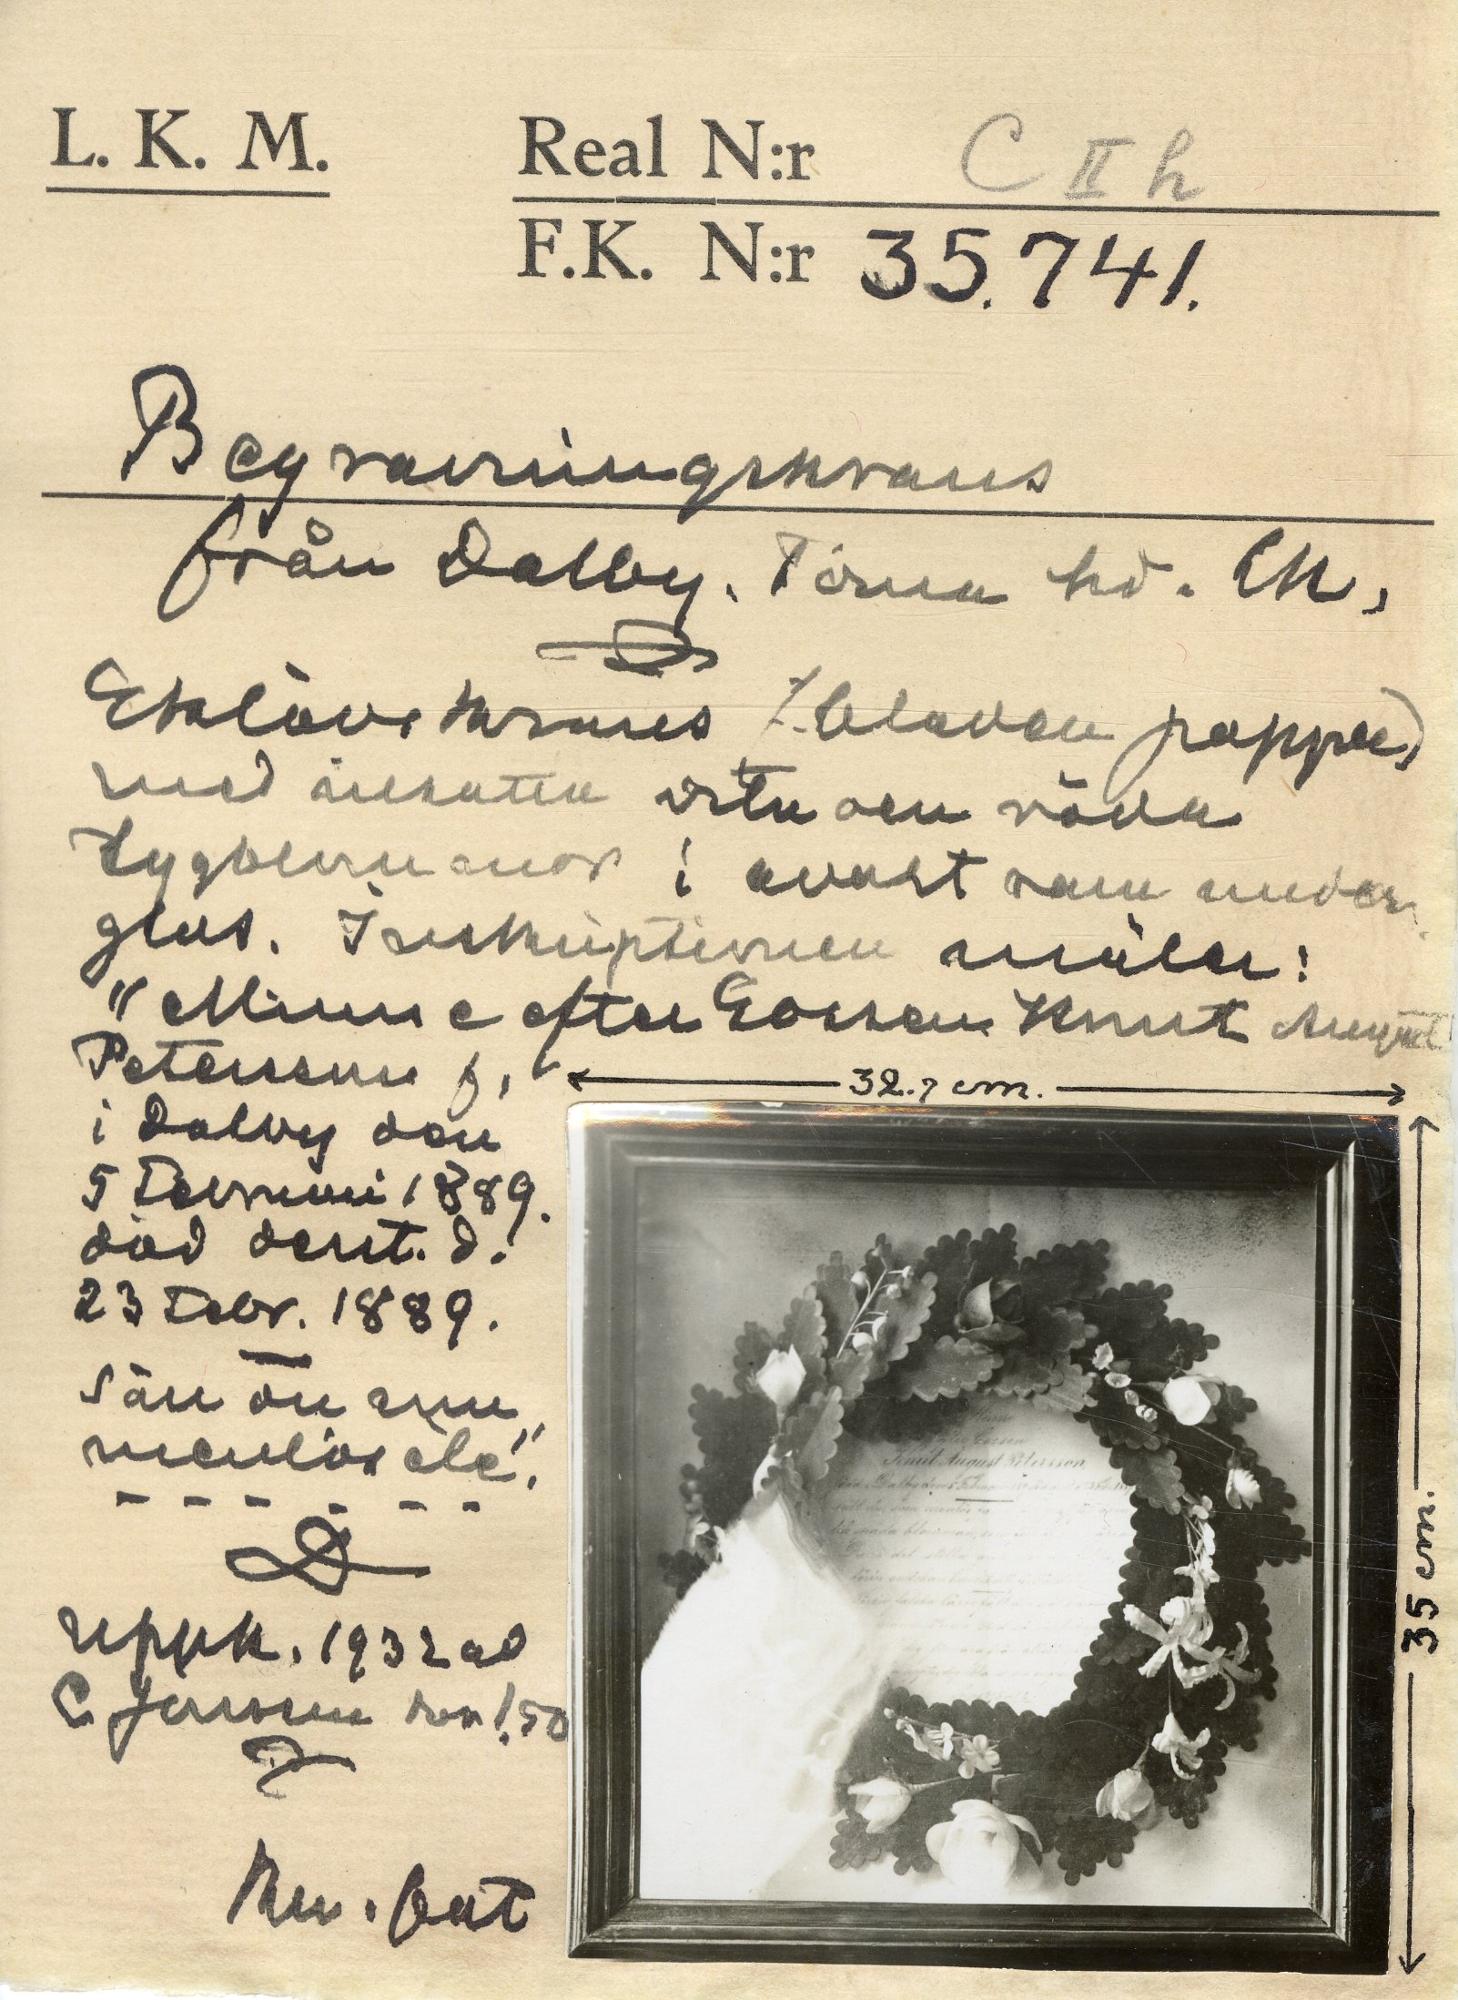 L. K. M. Real N:r C II h
F.K. N:r 35.741.
Begravningskrans
från Dalby. Torna hd. Sk,
Eklövskrans (bladen papper)
med insatta vita och röda
tygblommor i svart ram under
glas. Inskriptionen måler:
"Minne efter Gossen Knut August
Petersson f,
i Dalby den
5 Februari 1889.
död derst. d.
23 Febr. 1889.
Sän du
etc".
Uppk. 1932 ad
C. Jonsson kr 1.50
32.7 cm.
35 cm.
Knut August Petersson